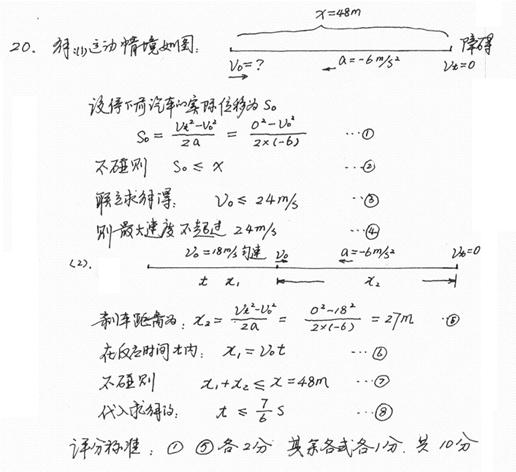 x=48m
20. 解:(1)运动情境如图: 障碍
V₀=? a=-6m/s² Vt=0
设停下前汽车的实际位移为S₀
S₀ = (Vt²-V₀²)/(2a) = (0²-V₀²)/(2×(-6)) …①
不碰则 S₀ ≤ x …②
联立求解得: V₀ ≤ 24m/s …③
则最大速度不超过 24m/s …④
(2). V₀=18m/s 匀速 V₀ a=-6m/s² Vt=0
t x₁ x₂
刹车距离为: x₂ = (Vt²-V₀²)/(2a) = (0²-18²)/(2×(-6)) = 27m …⑤
在反应时间t内: x₁=V₀t …⑥
不碰则 x₁+x₂ ≤ x = 48m …⑦
代入求得: t ≤ 7/6 s …⑧
评分标准: ① ⑤各2分 其余各式各1分. 共10分